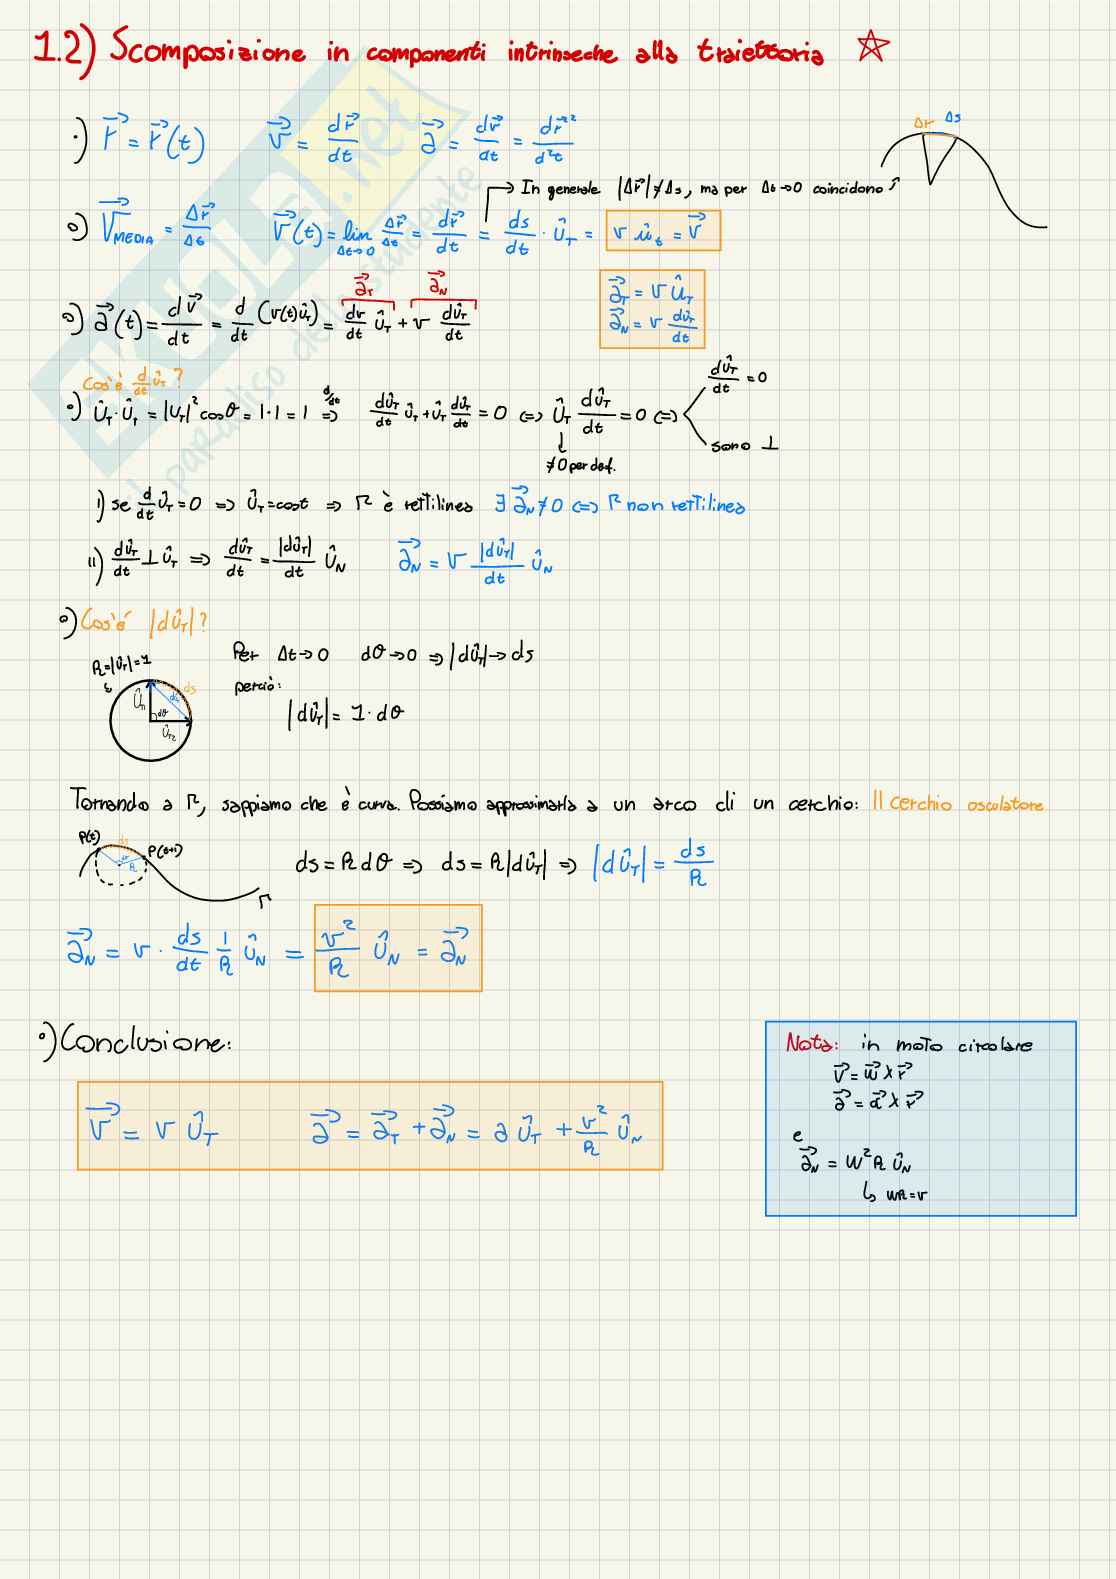 1.2) Scomposizione in componenti intrinseche alla traiettoria ☆
·) r⃗ = r⃗(t) v⃗ = dr⃗/dt a⃗ = dv⃗/dt = dr⃗²/d²t
Δr Δs
→ In generale |Δr⃗| ≠ Δs, ma per Δt→0 coincidono ↗
∘) V⃗MEDIA = Δr⃗/Δt v⃗(t) = lim Δt→0 Δr⃗/Δt = dr⃗/dt = ds/dt · ûT = v ût = v⃗
a⃗T a⃗N
∘) a⃗(t) = dv⃗/dt = d/dt (v(t)ûT) = dv/dt ûT + v dûT/dt
a⃗T = v ûT
a⃗N = v dûT/dt
Cos'è d/dt ûT ?
∘) ûT · ûT = |uT|² cosθ = 1·1 = 1 d/dt ⇒ dûT/dt ûT + ûT dûT/dt = 0 ⇔ ûT dûT/dt = 0 ⇔
dûT/dt = 0
sono ⊥
↓ ≠0 per def.
i) se d/dt ûT = 0 ⇒ ûT = cost ⇒ Γ è rettilinea ∃ a⃗N ≠ 0 ⇔ Γ non rettilinea
ii) dûT/dt ⊥ ûT ⇒ dûT/dt = |dûT|/dt ûN a⃗N = v |dûT|/dt ûN
∘) Cos'è |dûT| ?
R = |ûT| = 1
ds
dθ
Per Δt→0 dθ→0 ⇒ |dûT| → ds
perciò:
|dûT| = 1 · dθ
Tornando a Γ, sappiamo che è curva. Possiamo approssimarla a un arco di un cerchio: Il cerchio osculatore
P(t) ds P(t+1) R Γ
ds = R dθ ⇒ ds = R|dûT| ⇒ |dûT| = ds/R
a⃗N = v · ds/dt 1/R ûN = v²/R ûN = a⃗N
∘) Conclusione:
v⃗ = v ûT a⃗ = a⃗T + a⃗N = a ûT + v²/R ûN
Nota: in moto circolare
v⃗ = w⃗ × r⃗
a⃗ = α⃗ × r⃗
e
a⃗N = w² R ûN
↳ wR = v
SKUOLA.net
il paradiso dello studente